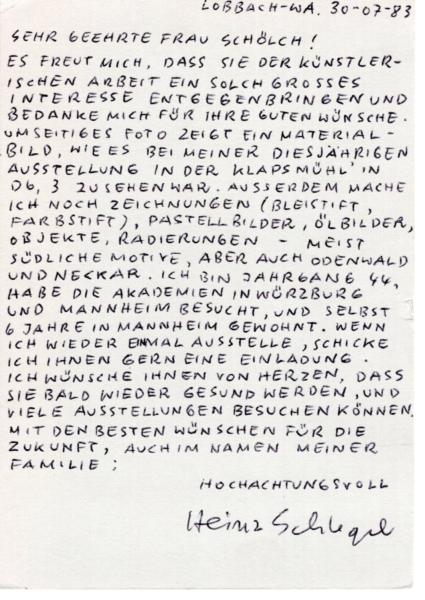 LOBBACH-WA. 30-07-83
SEHR GEEHRTE FRAU SCHÖLCH!
ES FREUT MICH, DASS SIE DER KÜNSTLER-
ISCHEN ARBEIT EIN SOLCH GROSSES
INTERESSE ENTGEGENBRINGEN UND
BEDANKE MICH FÜR IHRE GUTEN WÜNSCHE.
UMSEITIGES FOTO ZEIGT EIN MATERIAL-
BILD, WIE ES BEI MEINER DIESJÄHRIGEN
AUSSTELLUNG IN DER KLAPSMÜHL' IN
D6, 3 ZU SEHEN WAR. AUSSERDEM MACHE
ICH NOCH ZEICHNUNGEN (BLEISTIFT,
FARBSTIFT), PASTELLBILDER, ÖLBILDER,
OBJEKTE, RADIERUNGEN - MEIST
SÜDLICHE MOTIVE, ABER AUCH ODENWALD
UND NECKAR. ICH BIN JAHRGANG 44,
HABE DIE AKADEMIEN IN WÜRZBURG
UND MANNHEIM BESUCHT, UND SELBST
6 JAHRE IN MANNHEIM GEWOHNT. WENN
ICH WIEDER EINMAL AUSSTELLE, SCHICKE
ICH IHNEN GERN EINE EINLADUNG.
ICH WÜNSCHE IHNEN VON HERZEN, DASS
SIE BALD WIEDER GESUND WERDEN, UND
VIELE AUSSTELLUNGEN BESUCHEN KÖNNEN.
MIT DEN BESTEN WÜNSCHEN FÜR DIE
ZUKUNFT, AUCH IM NAMEN MEINER
FAMILIE;
HOCHACHTUNGSVOLL
Heinz Schlegel